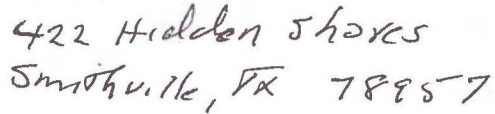 422 Hidden Shores
Smithville, TX 78957